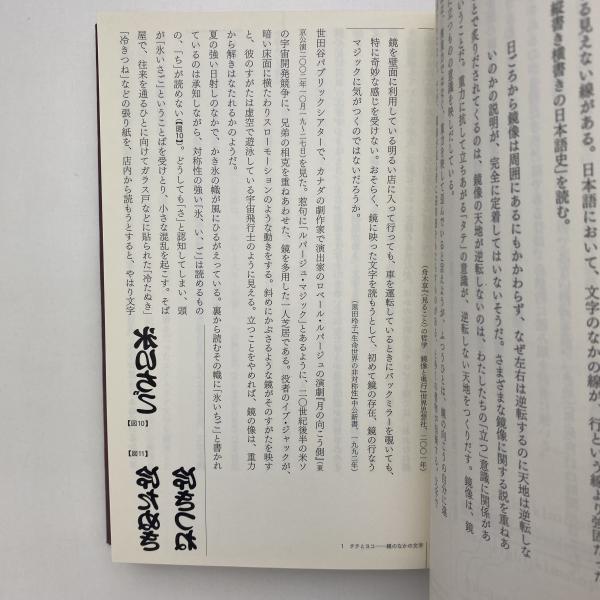 る見えない線がある。日本語において、文字のなかの線が、行という線より強固だった
縦書き横書きの日本語史』を読む。
日ごろから鏡像は周囲にあるにもかかわらず、なぜ左右は逆転するのに天地は逆転しな
いのかの説明が、完全に定着してはいないそうだ。さまざまな鏡像に関する説を重ねあ
とで炙りだされてくるのは、鏡像の天地が逆転しないのは、わたしたちの「立つ」意識に関係があ
いうことだ。重力に抗して立ちあがる「タテ」の意識が、逆転しない天地をつくりだす。鏡像は、鏡
鏡を壁面に利用している明るい店に入って行っても、車を運転しているときにバックミラーを覗いても、
特に奇妙な感じを受けない。おそらく、鏡に映った文字を読もうとして、初めて鏡の存在、鏡の行なう
マジックに気がつくのではないだろうか。
(黒田玲子『生命世界の非対称性』中公新書、一九九二年)
世田谷パブリックシアターで、カナダの劇作家で演出家のロベール・ルパージュの演劇『月の向こう側』(東
京公演二〇〇二年一〇月一九〜二七日)を見た。惹句に「ルパージュ・マジック」とあるように、二〇世紀後半の米ソ
の宇宙開発競争に、兄弟の相克を重ねあわせた、鏡を多用した一人芝居である。役者のイブ・ジャックが、
暗い床面に横たわりスローモーションのような動きをする。斜めにかぶさるような鏡がそのすがたを映す
と、彼のすがたは虚空で遊泳している宇宙飛行士のように見える。立つことをやめれば、鏡の像は、重力
から解きはなたれるかのようだ。
夏の強い日射しのなかで、かき氷の幟が風にひるがえっている。裏から読むその幟に「氷いちご」と書かれ
ているのは承知しながら、対称性の強い「氷、い、こ」は読めるもの
の、「ち」が読めない【図10】。どうしても「さ」と認知してしまい、頭
が「氷いさご」ということばを受けとり、小さな混乱を起こす。そば
屋で、往来を通るひとに向けてガラス戸などに貼られた「冷たぬき」
「冷きつね」などの張り紙を、店内から読もうとすると、やはり文字
【図10】
【図11】
1 タテとヨコ──鏡のなかの文字